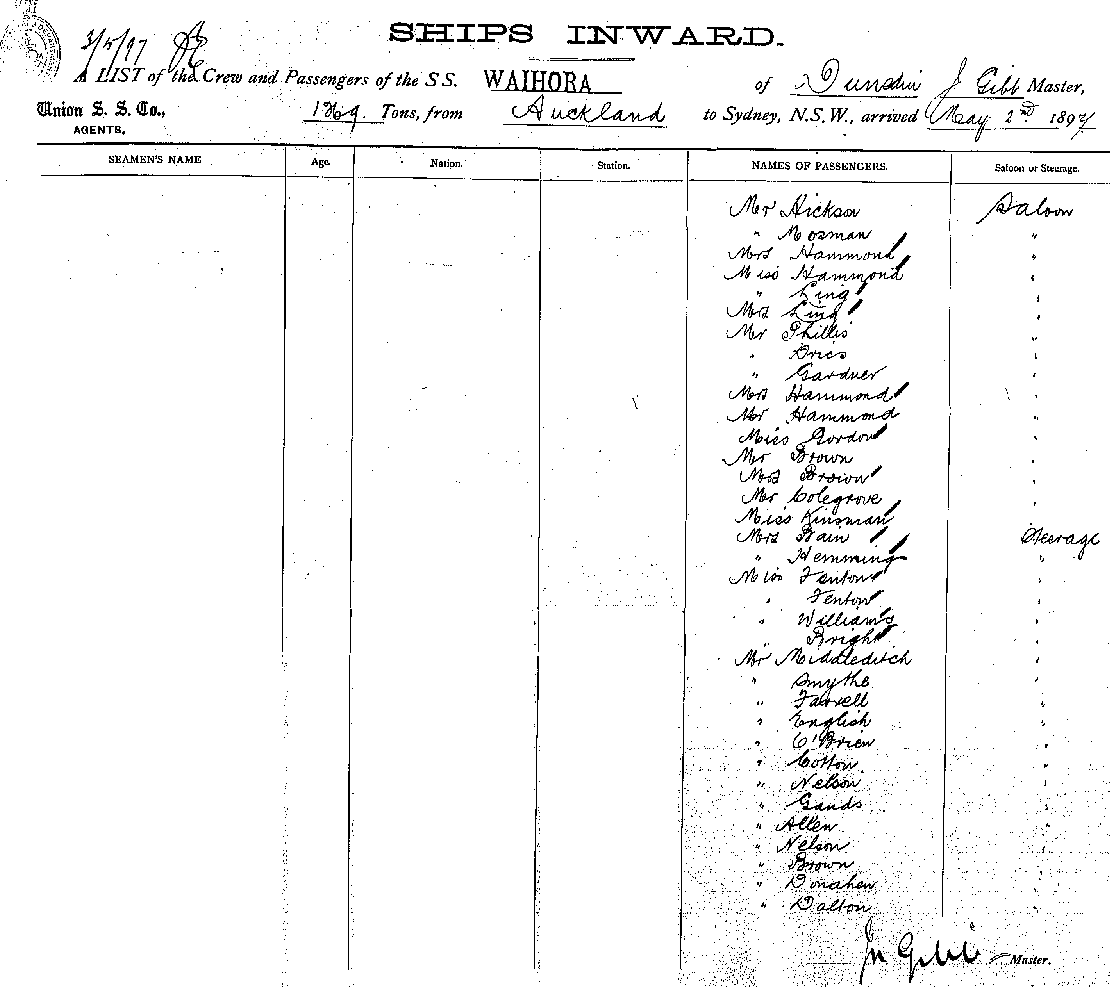 3/5/97
SHIPS INWARD.
A LIST of the Crew and Passengers of the S.S. WAIHORA of Dunedin J Gibb Master,
Union S. S. Co., AGENTS, 1269. Tons, from Auckland to Sydney, N.S.W., arrived May 2nd 1897
SEAMEN'S NAME Age. Nation. Station. NAMES OF PASSENGERS. Saloon or Steerage.
Mr Hickson Saloon
" Mosman "
Mrs Hammond "
Miss Hammond "
" Ling "
Mrs Ling "
Mr Phillis "
" Bries "
" Gardner "
Mrs Hammond "
Mr Hammond "
Miss Gordon "
Mr Brown "
Mrs Brown "
Mr Colegrove "
Miss Kinsman "
Mrs Bain Steerage
" Hemming "
Miss Fenton "
" Fenton "
" Williams "
" Bright "
Mr Middleditch "
" Smythe "
" Farrell "
" English "
" O'Brien "
" Cotton "
" Nelson "
" Gands "
" Allen "
" Nelson "
" Brown "
" Donahen "
" Dalton "
Jn Gibb Master.